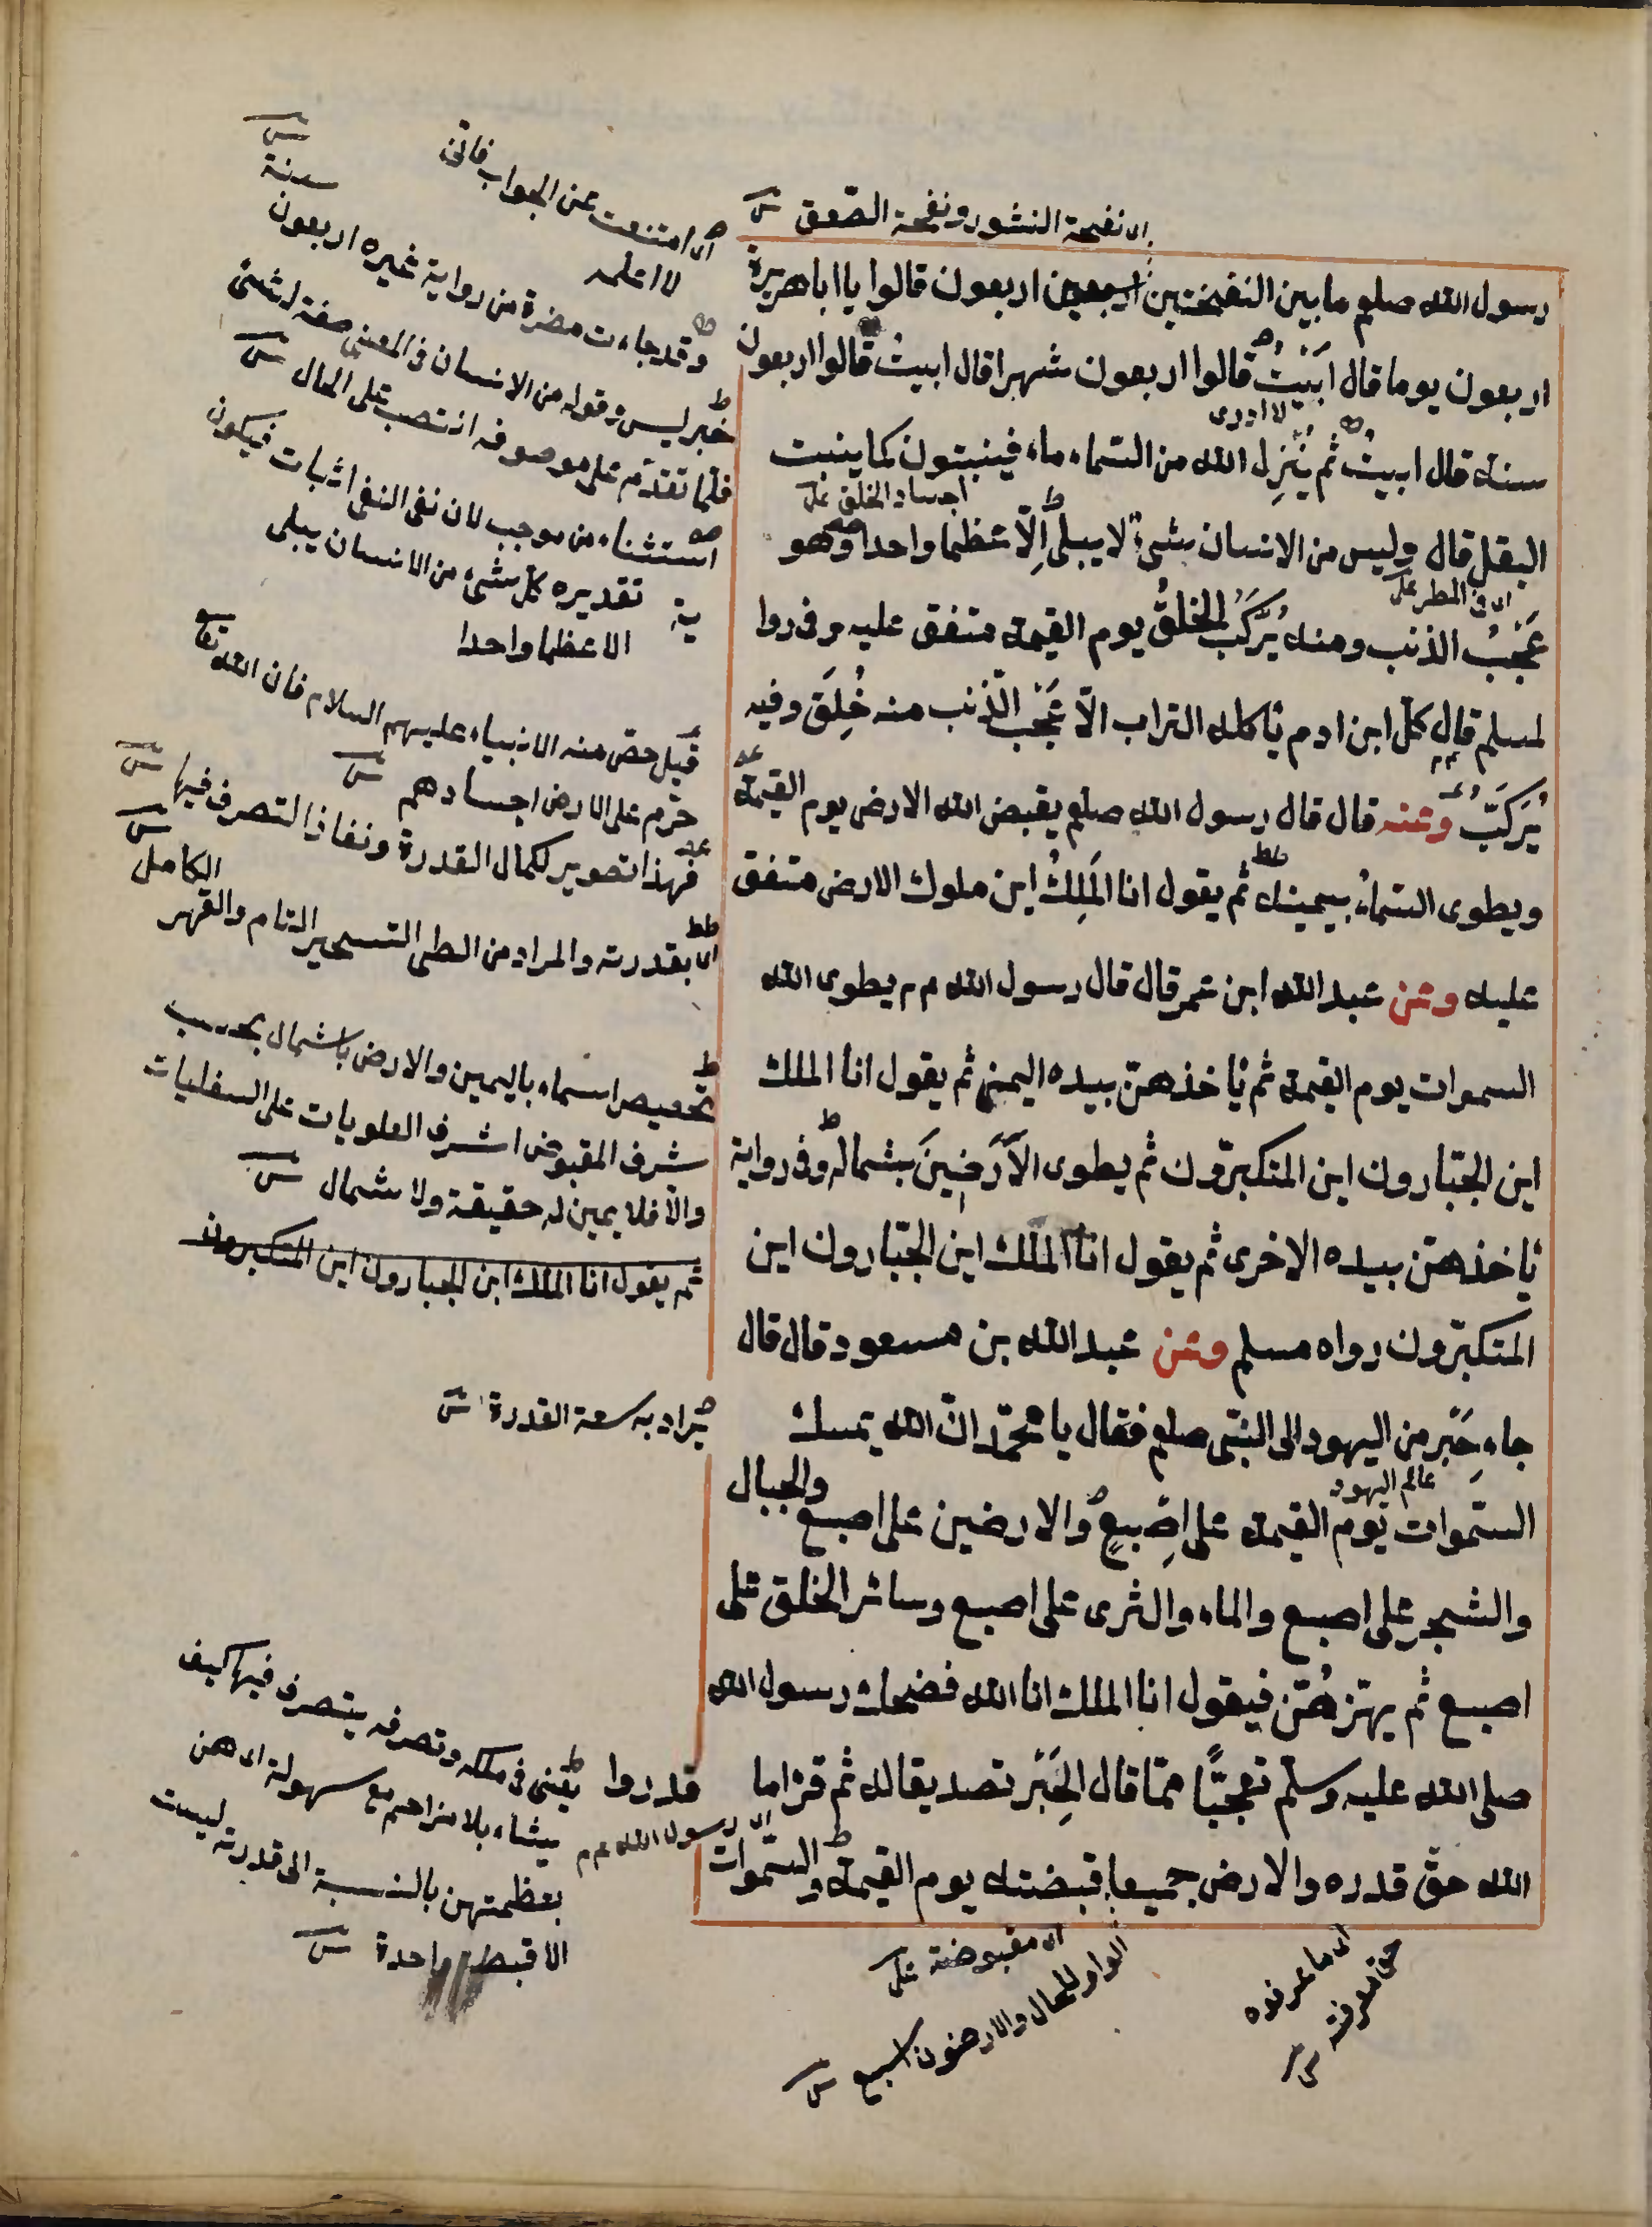 اى نفخة النشور ونفخة الصعق ش
رسول الله صلعم ما بين النفختين اربعين اربعون قالوا يا ابا هريرة
اربعون يوما قال ابَيْتُ قالوا اربعون شهرا قال ابيتُ قالوا اربعون
لا ادرى
سنة قال ابيتُ ثم يُنَزِل الله من السّماء ماء فينبتون كما ينبت
اجساد الخلق عل
البقل قال وليس من الانسان شىء لا يبلى اِلّا عظما واحدا وهو
اى فى المطر عل
عَجْبُ الذنب ومنه يُرَكَّبُ الخلقُ يوم القيمة متفق عليه وفى روا
ية
لمسلم قال كلّ ابن ادم يأكله التراب الّا عَجْبَ الذّنب منه خُلِقَ وفيه
يُركَّبُ وعنه قال قال رسول الله صلعم يقبض الله الارض يوم القيمة
ويطوى السّماءَ بيمينه ثم يقول انا المَلِكُ اين ملوك الارض متفق
عليه وعن عبد الله ابن عمر قال قال رسول الله مم يطوى الله
السموات يوم القيمة ثم يأخذهنّ بيده اليمنى ثم يقول انا الملك
اين الجبّارون اين المتكبّرون ثم يطوى الاَرَضِينَ بشماله وفى رواية
يأخذهنّ بيده الاخرى ثم يقول انا الملك اين الجبّارون اين
المتكبّرون رواه مسلم وعن عبد الله بن مسعود قال قال
جاء حَِبْر من اليهود الى النبّى صلعم فقال يا محمّد انّ الله يمسك
عالم اليهود
السّموات يوم القيمة على اِصْبعٍ والارضين على اصبع والجبال
والشجرِ على اصبع والماء والثرى على اصبع وسائر الخلق على
اصبع ثم يهزّهُنّ فيقول انا الملك انا الله فضحك رسول الله
صلى الله عليه وسلّم تعجّبًا ممّا قال الحِبْر تصديقا له ثم قرأ ما قدروا
اى رسول الله مم
الله حقّ قدره والارض جميعا قبضته يوم القيمة والسّموات
اى ما عرفوه
حق معرفته
اى مقبوضة عل
الواو للحال والارضون السبع ش
اى امتنعت عن الجواب فانى
لا اعلمه ش
وقد جاءت مفسرة من رواية غيره اربعون
سنة
خبر ليس وقوله من الانسان فى المعنى صفة لشئ
فلما تقدّم على موصوفه انتصب على الحال ش
استثناء من موجب لان نفى النفى اثبات فيكون
تقديره كل شىء من الانسان يبلى
الا عظما واحدا
قيل خصّ منه الانبياء عليهم السلام فان الله تعا
حرّم على الارض اجسادهم ش
فهذا تصوير لكمال القدرة ونفاذ التصرف فيها ش
اى بقدرته والمراد من الطى التسخير التام والقهر
الكامل ش
تخصيص السماء باليمين والارض بالشمال بحسب
شرف المقبوض اشرف العلويات على السفليات
والّا فلا يمين له حقيقة ولا شمال ش
ثم يقول انا الملك اين الجبارون اين المتكبرون
يراد به سعة القدرة ش
يعنى فى ملكه وتصرفه يتصرف فيها كيف
يشاء بلا مزاحم مع سهولة اى هن
بعظمتهن بالنسبة الى قدرته ليست
الا قبضة واحدة ش